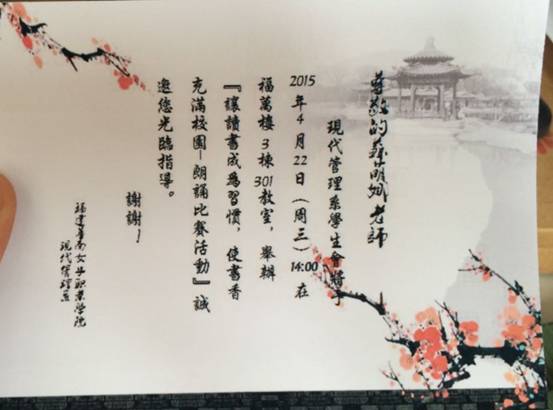 尊敬的蔡萌娬老師
現代管理系學生會將于
2015年4月22日（周三）14:00在
福萬樓3棟301教室，舉辦
『讓讀書成為習慣，使書香
充滿校園—朗誦比賽活動』誠
邀您光臨指導。
謝謝！
福建華南女子职業学院
現代管理系